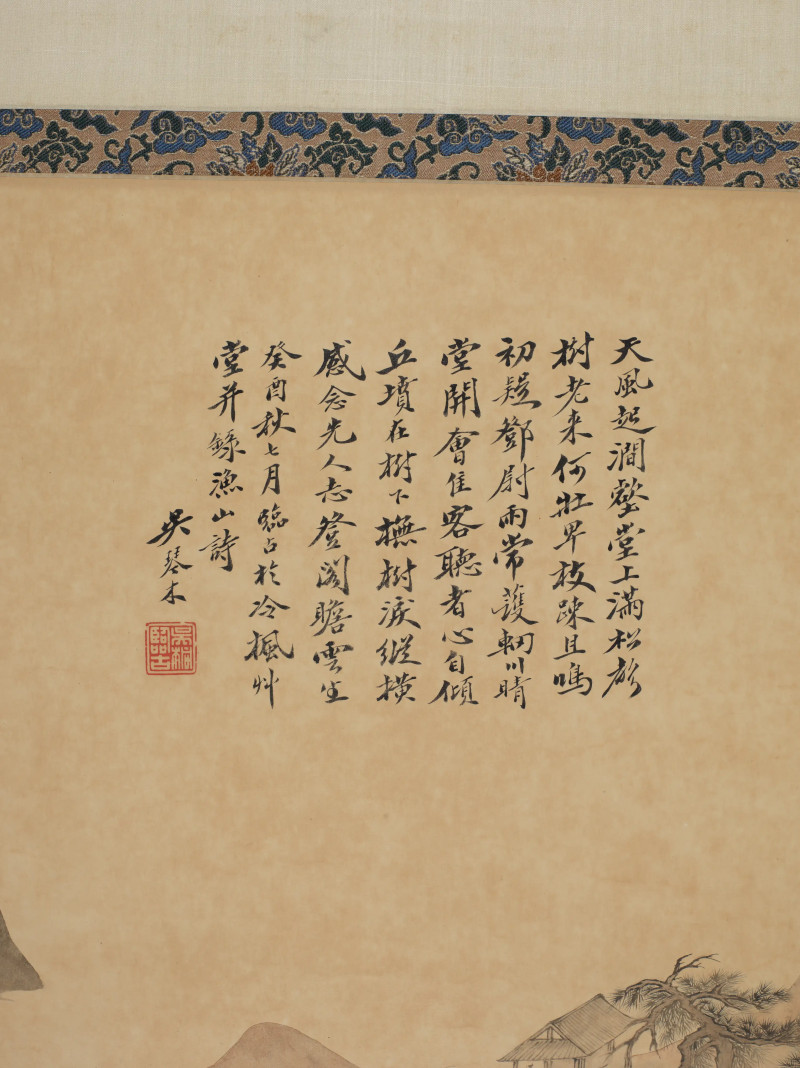 天風起澗壑堂上滿松聲
樹老来何壯卑枝踈且鳴
初疑鄧尉雨常護輞川晴
堂開會佳客聽者心自傾
丘墳在樹下撫樹淚縱橫
感念先人志登閣瞻雲生
癸酉秋七月臨古於冷楓艸
堂并錄漁山詩
吳琴木
吳桐
臨古